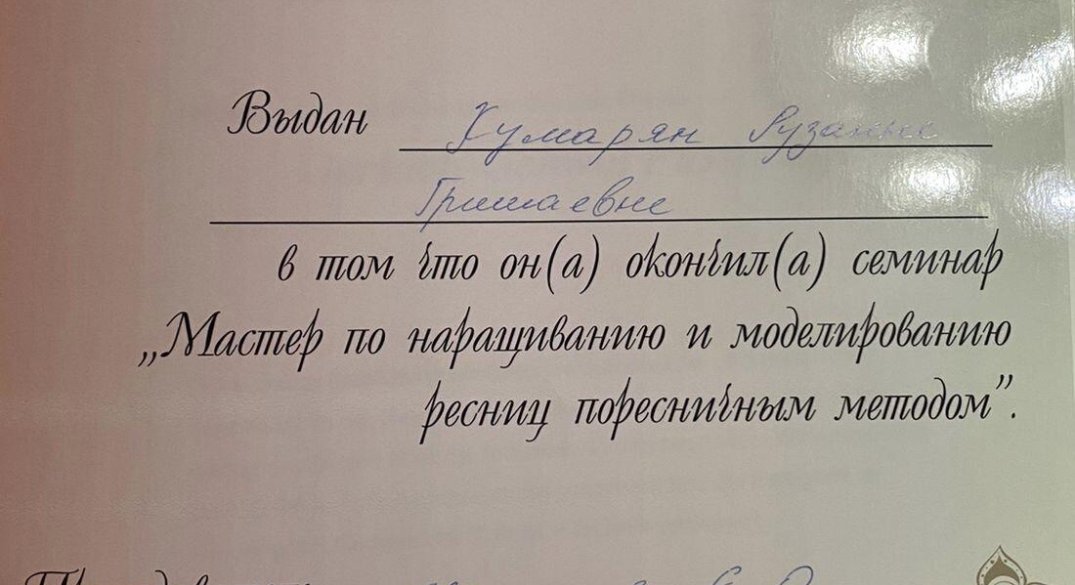 Выдан Хумарян Рузанне
Гришаевне
в том что он(а) окончил(а) семинар
„Мастер по наращиванию и моделированию
ресниц поресничным методом”.